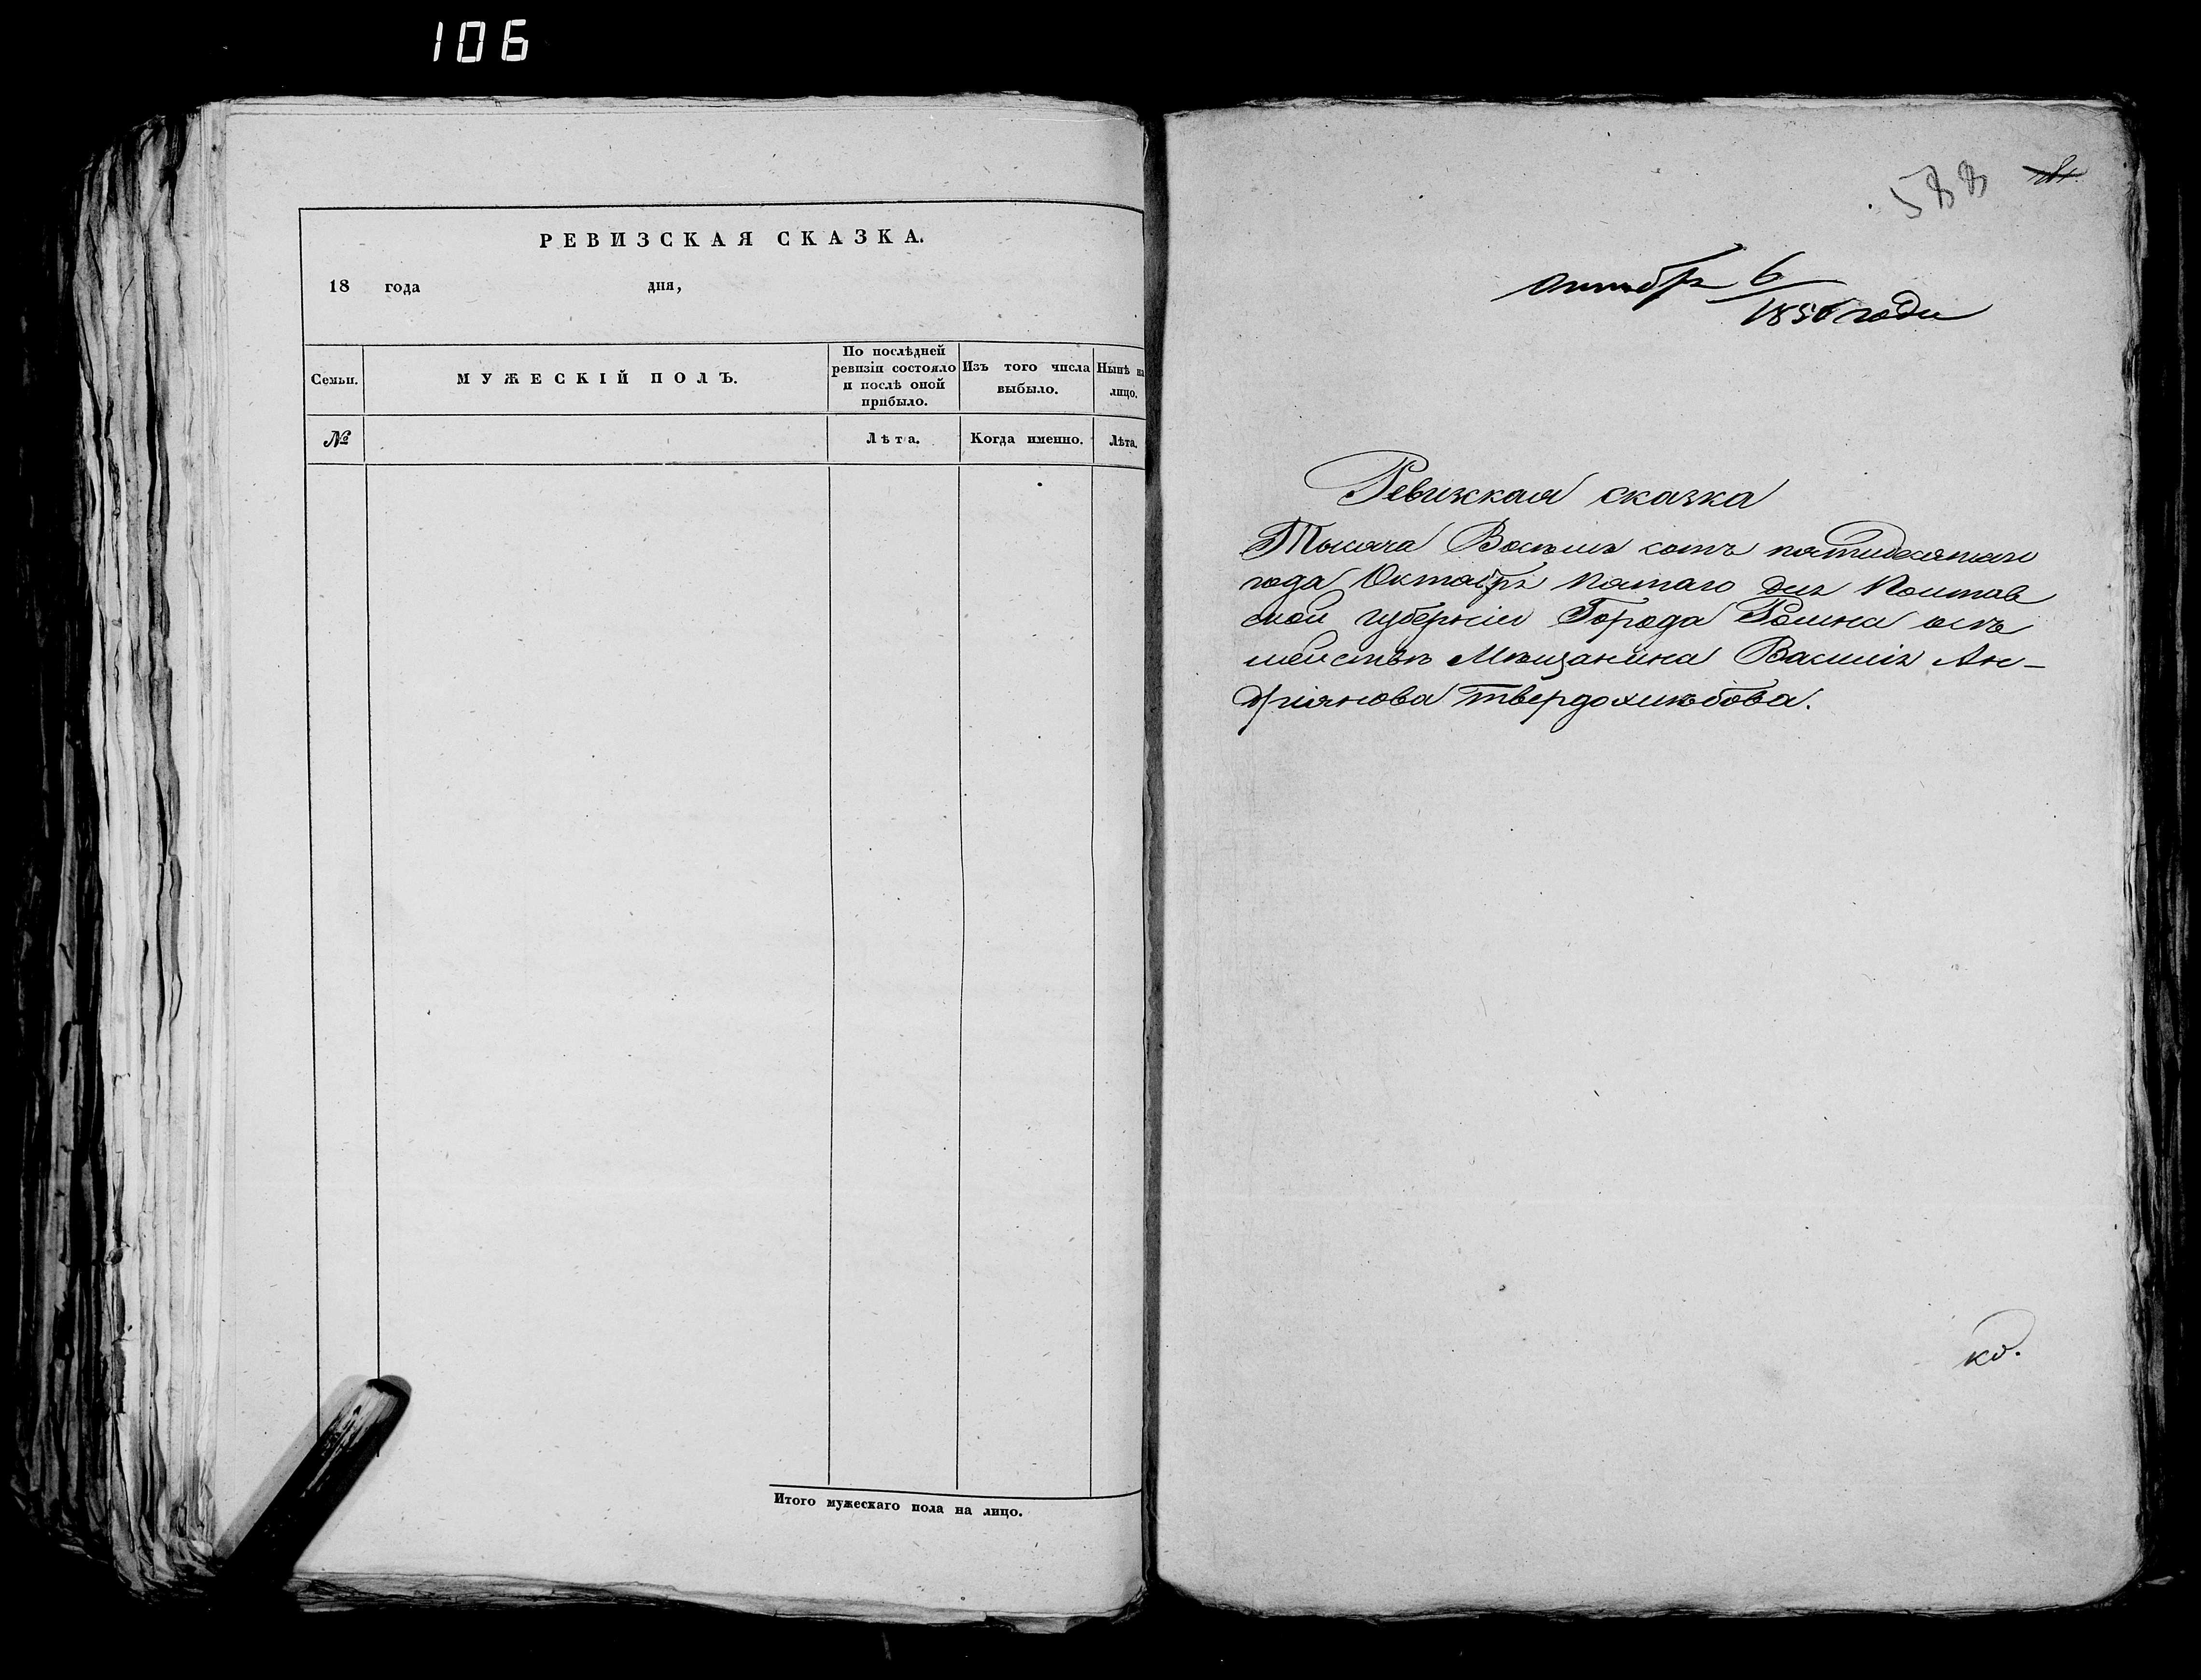 106
РЕВИЗСКАЯ СКАЗКА.
18 года дня,
Семьи.
МУЖЕСКІЙ ПОЛЪ.
По послѣдней
ревизіи состояло
и послѣ оной
прибыло.
Изъ того числа
выбыло.
Нынѣ на
лицо.
№
Лѣта.
Когда именно.
Лѣта.
Итого мужескаго пола на лицо.
588
6
1850 года
Ревизкая сказка
Тысяча Восемь сотъ пятидесятаго
года Октября пятаго дня Полтав
ской губерніи Города Ромна
Мѣщанина Василія Ан-
дріянова твердохлѣбова.